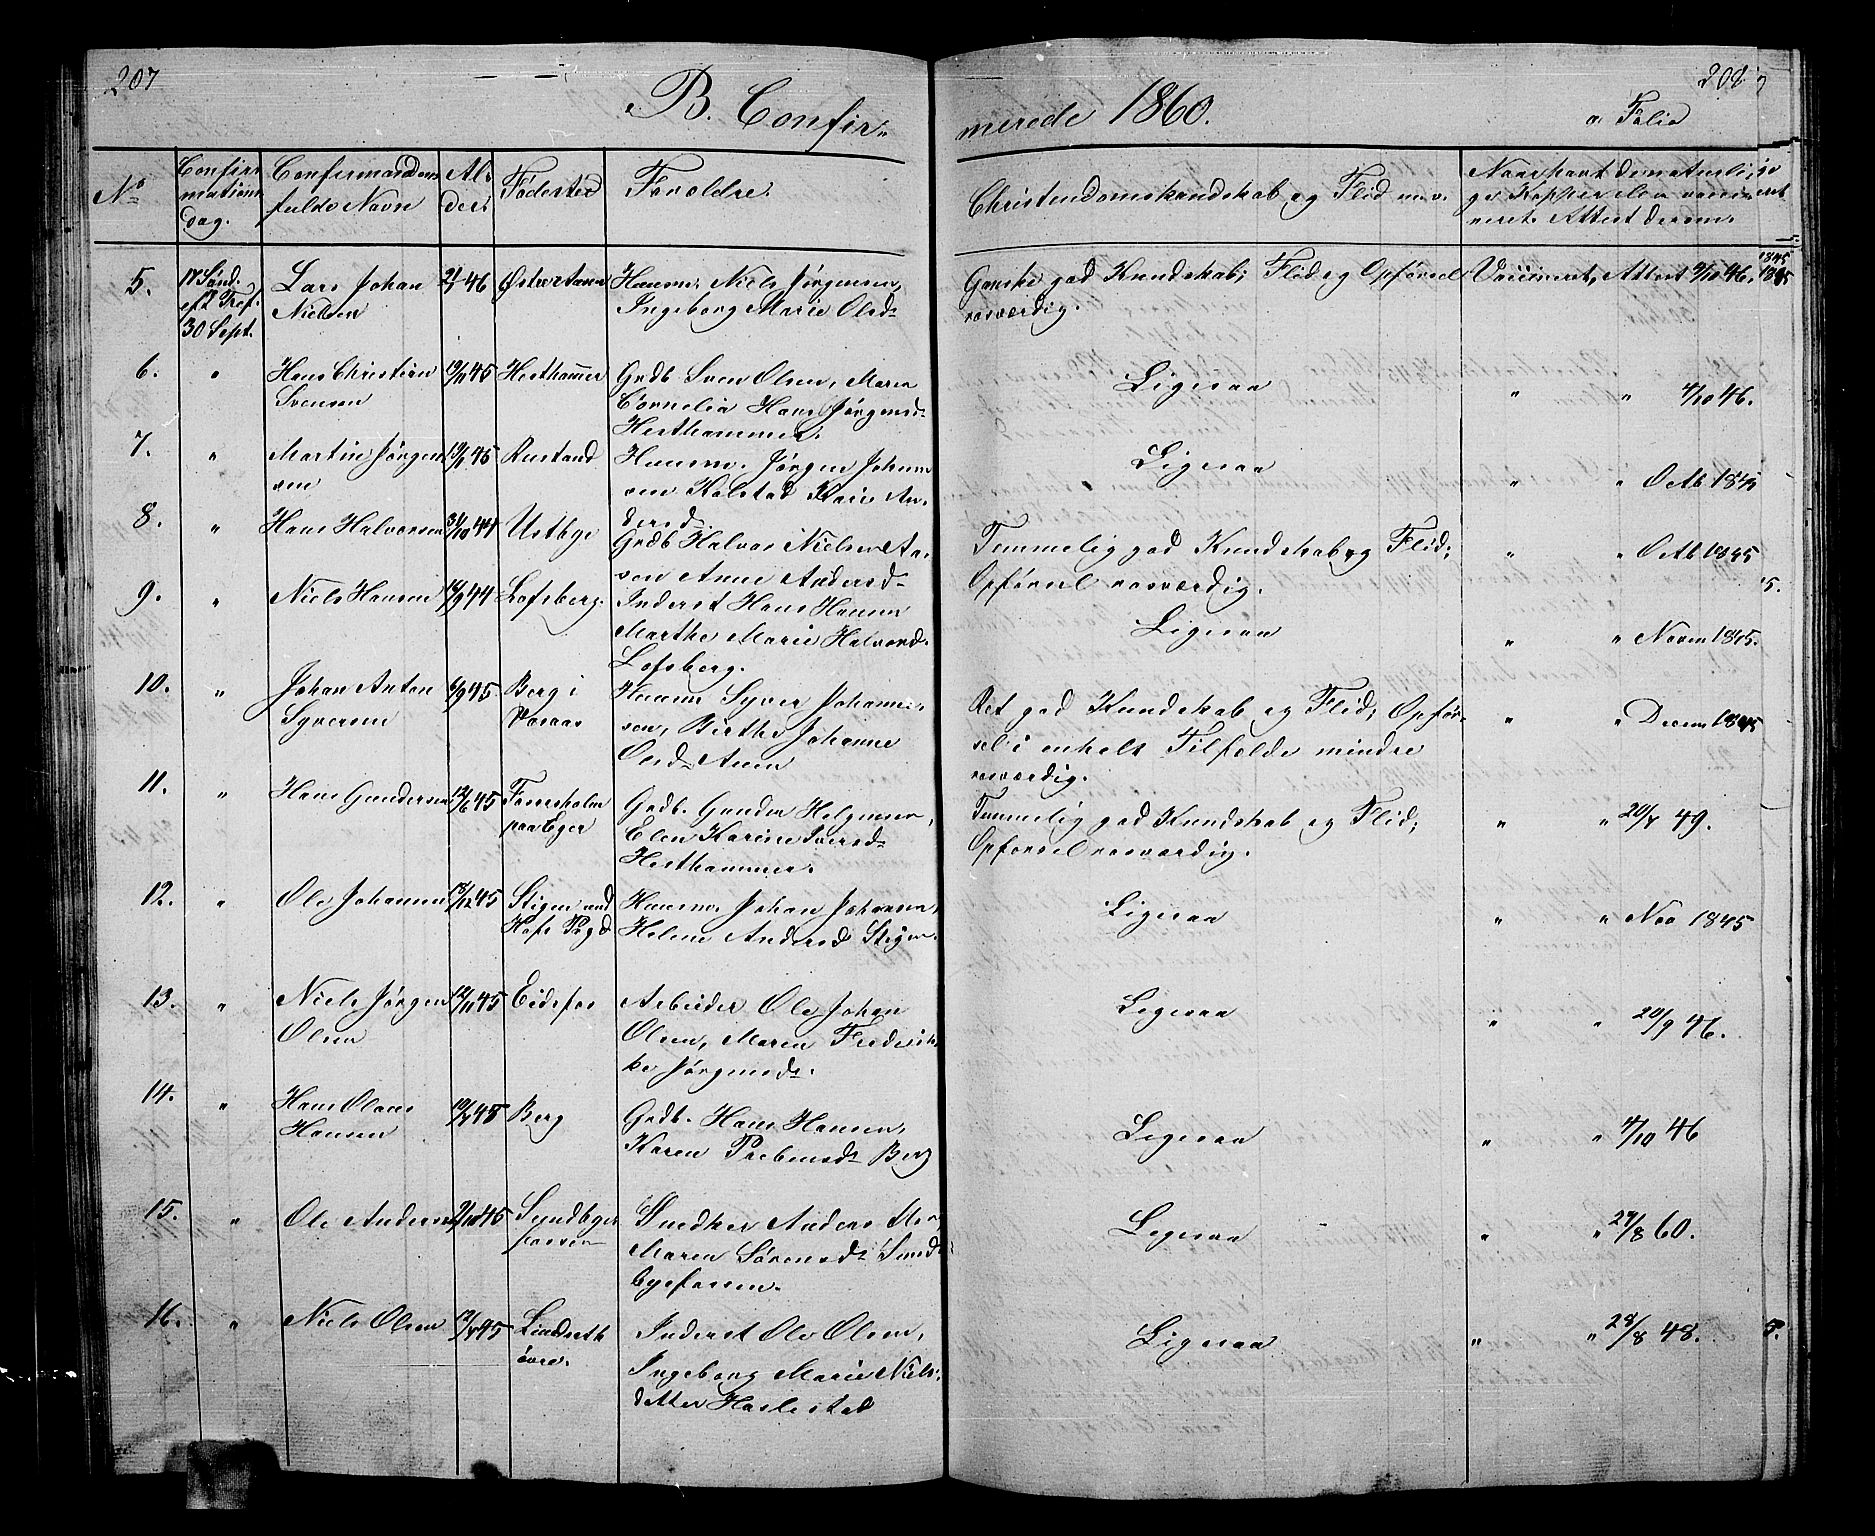 207
208
B. Confir-
merede 1860.
Folio
No
Confir-
mations
dag.
Confirmandens
fulde Navn
Al-
der.
Fødested
Forældre.
Christendomskundskab og Flid m.v.
Naar havt de naturli-
ge Kopper eller vacci-
neret. Attest derom.
5.
17 Sønd.
eft. Tref.
30 Sept.
Lars Johan
Nielsen
46
Huusm. Niels Jørgensen,
Ingeborg Marie Olsd.
Ganske god Kundskab; Flid og Opførsel
rosværdig.
Vaccineret, Attest 9/10 46.
6.
"
Hans Christian
Svensen
45
Hesthammer
Grdb. Sven Olsen, Maren
Cornelia Hans Jørgensd.
Hesthammer.
Ligesaa
" " 4/10 46.
7.
"
Martin Jørgen-
sen
45
Rustand
Huusm. Jørgen Johan-
sen Kolstad Karie An-
dersd.
Ligesaa
" " Octb 1845
8.
"
Hans Halvorsen
31/10 44
Ustbye
Grdb Halvor Nielsen Aa-
sen Anne Andersd.
Temmelig god Kundskab og Flid;
Opførsel rosværdig.
" " Octb 1845
9.
"
Niels Hansen
44
Lofsberg.
Inderst Hans Hansen
Marthe Marie Halvorsd.
Lofsberg.
Ligesaa
" " Novem 1845.
10.
"
Johan Anton
Syversen
6/9 45.
Berg i
Vasaas
Huusm Syver Johanne-
sen, Birthe Johanne
Olsd. Aasen
Ret god Kundskab og Flid; Opfør-
sel i enkelt Tilfælde mindre
rosværdig.
" " Decem 1845
11.
"
Hans Gundersen
12/6 45
Fossesholm
paa Eger
Grdb. Gunder Helgesen,
Elen Karine Iversd.
Hesthammer.
Temmelig god Kundskab og Flid;
Opførsel rosværdig.
" " 20/8 49.
12.
"
Ole Johansen
18/12 45
Stigen ved
Hofs Pgd
Huusm. Johan Johansen,
Helene Andersd. Stigen.
Ligesaa
" " Nov 1845
13.
"
Niels Jørgen
Olsen
12/11 45
Eidsfos
Arbeider Ole Johan
Olsen, Maren Frederik-
ke Jørgensd.
Ligesaa
" " 20/9 46.
14.
"
Hans Olaus
Hansen
45
Berg
Grdb. Hans Hansen,
Karen Prebensd. Berg
Ligesaa
" " 4/10 46
15.
"
Ole Andersen
9/10 45
Sundbye
fossen
Snedker Anders
Maren Sørensd. Sund-
byefossen.
Ligesaa
" " 27/8 60.
16.
"
Niels Olsen
45
Lindseth
øvre.
Inderst Ole Olsen,
Ingeborg Marie Niels-
datter Haslestad
Ligesaa
" " 28/8 48.